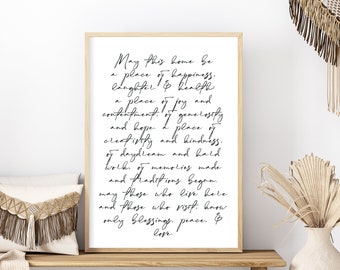 May this home be
a place of happiness,
laughter & health
a place of joy and
contentment, of generosity
and hope a place of
creativity and kindness,
of daydream and hard
work of memories made
and traditions begun.
may those who live here
and those who visit, know
only blessings, peace, &
love.